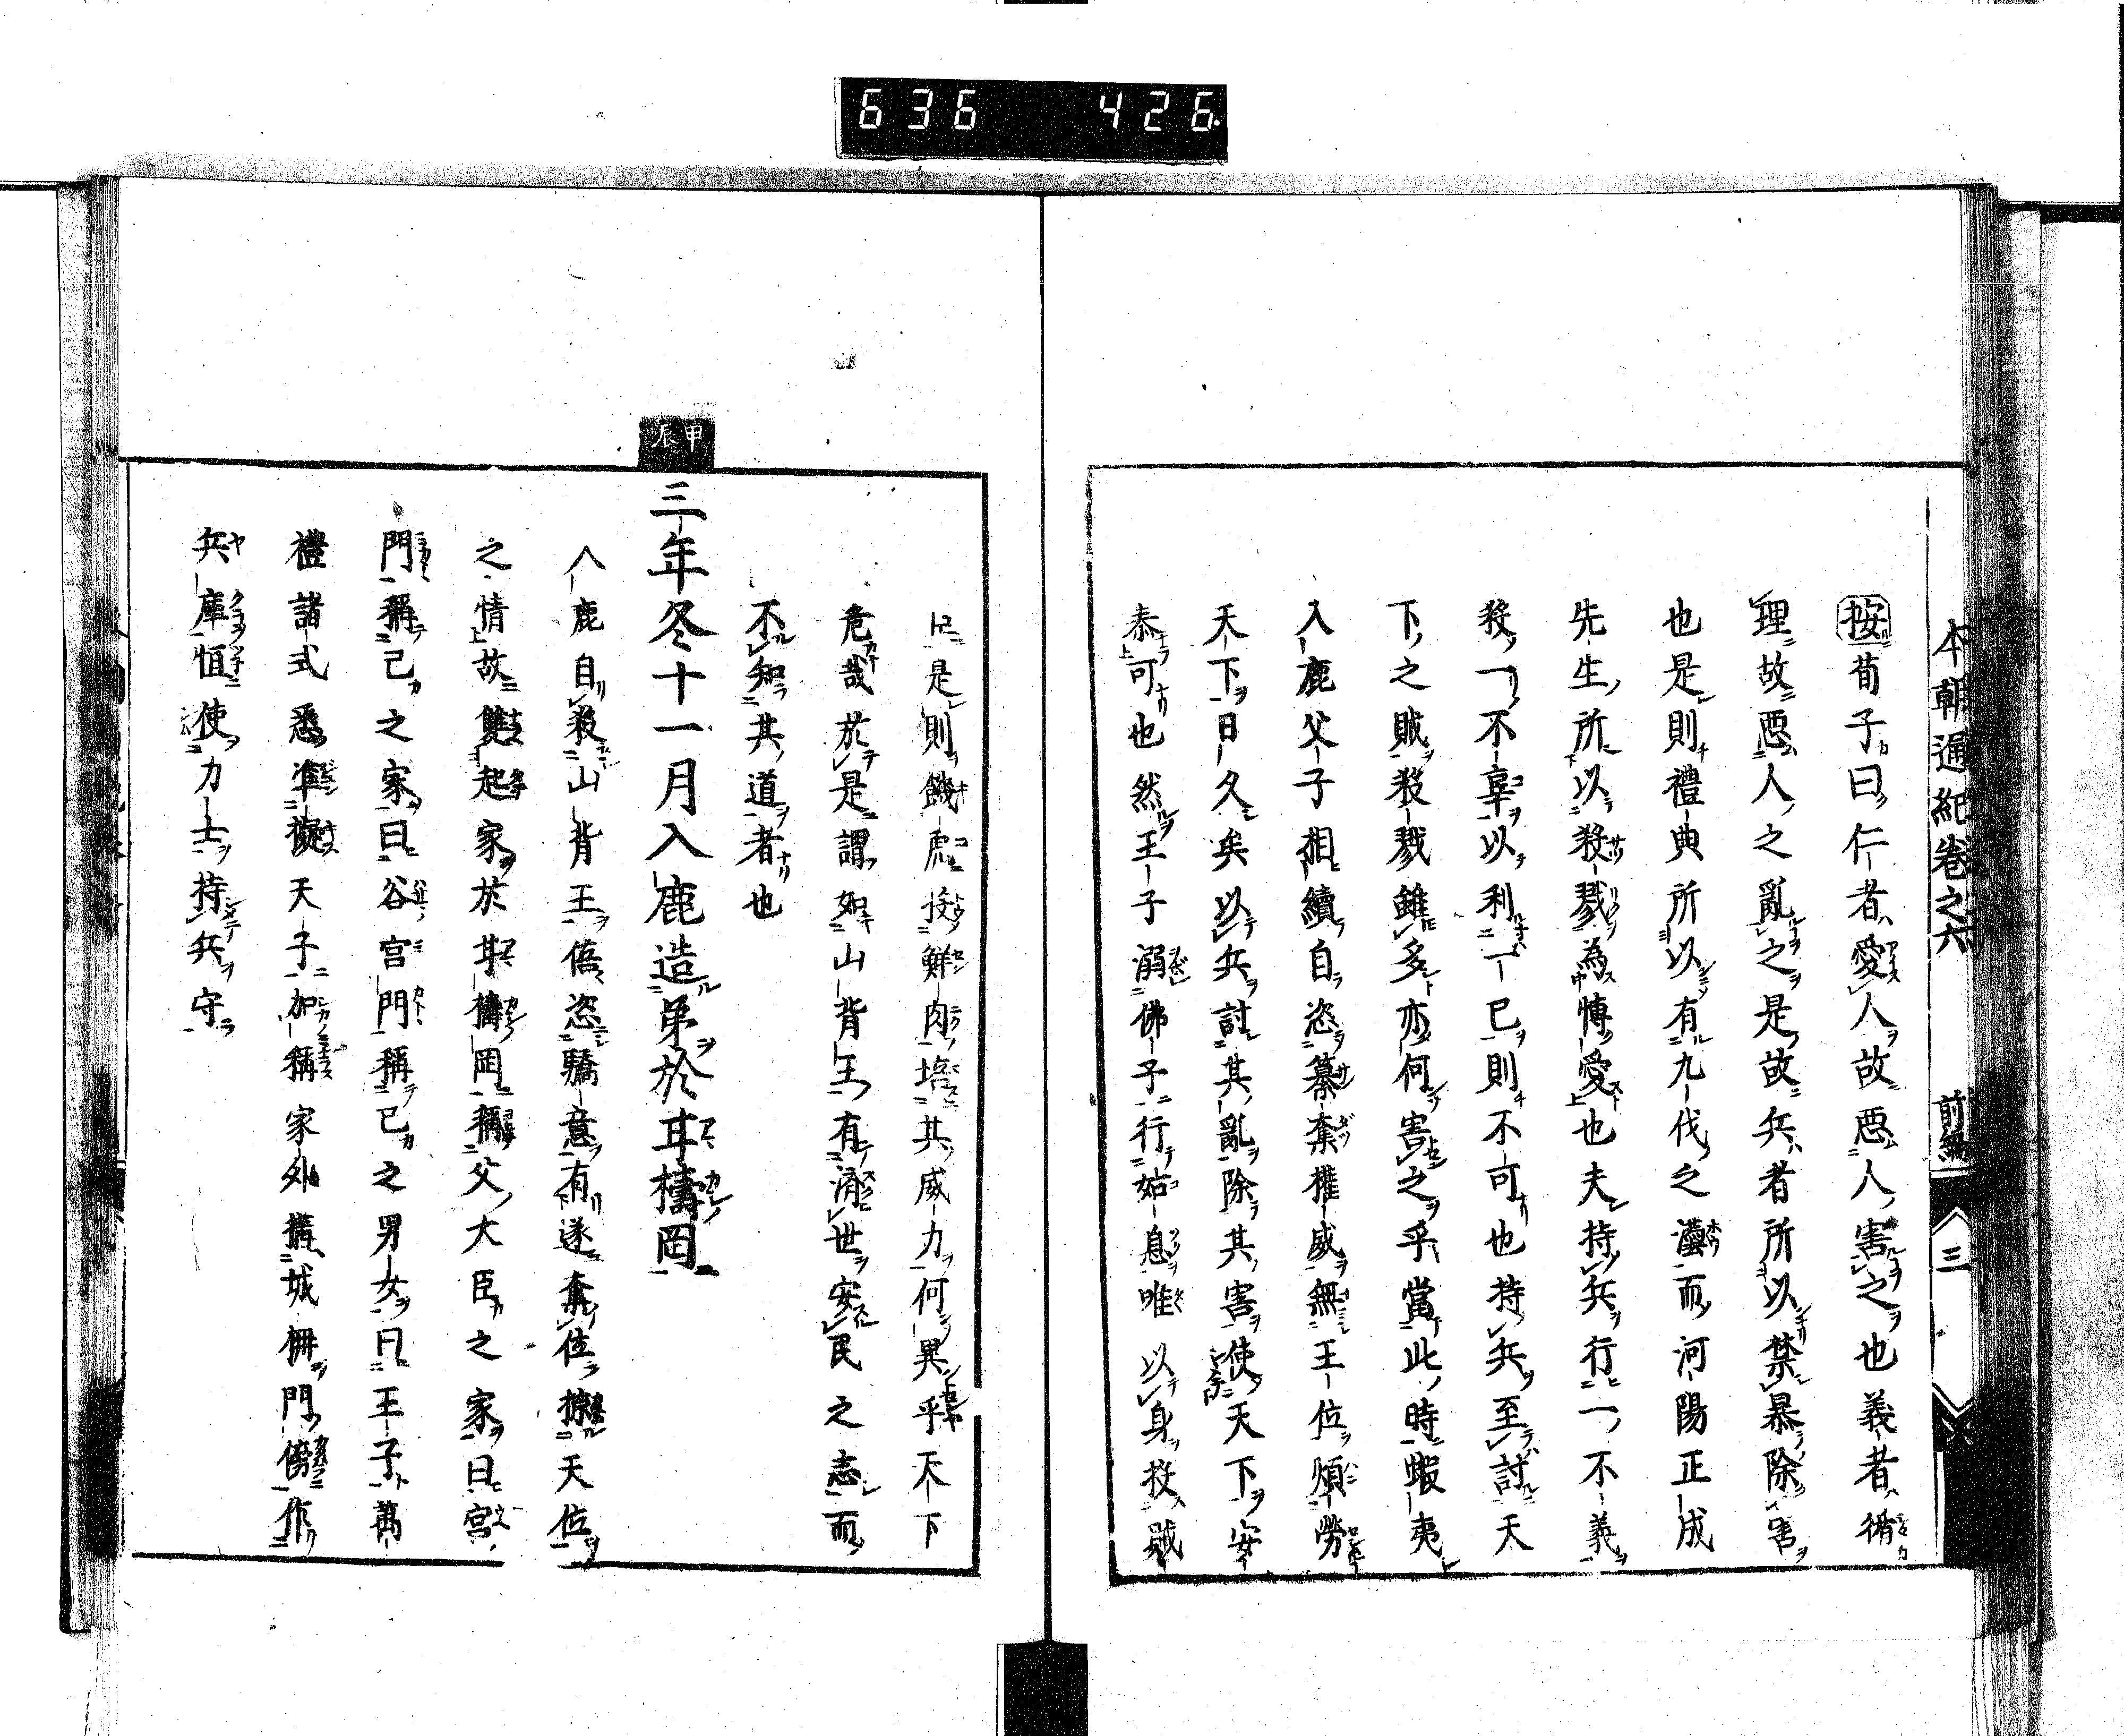 636 426.
本朝通紀卷之六 前編 三
按荀子曰仁者愛人故惡人害之也義者循
理故惡人之亂之是故兵者所以禁暴除害
也是則禮典所以有九伐之灋而河陽正成
先生所以殺戮為博愛也夫持兵行一不義
殺一不辜以利一已則不可也持兵至討天
下之賊殺戮雖多亦何害之乎當此時蝦夷
入鹿父子相續自恣簒奪權威無王位煩勞
天下日久矣以兵討其亂除其害使天下安
泰可也然王子溺佛子行姑息唯以身投賊
是則餓虎投鮮肉培其威力何異乎天下
危哉於是謂如山背王有濟世安民之志而
不知其道者也
甲辰
三年冬十一月入鹿造弟於耳檮岡
入鹿自殺山背王倍恣驕意有遂奪位掠天位
之情故雙起家於耳檮岡稱父大臣之家曰宮
門稱己之家曰谷宮門稱已之男女曰王子萬
禮諸式悉準擬天子加稱家外搆城柵門傍作
兵庫恒使力士持兵守